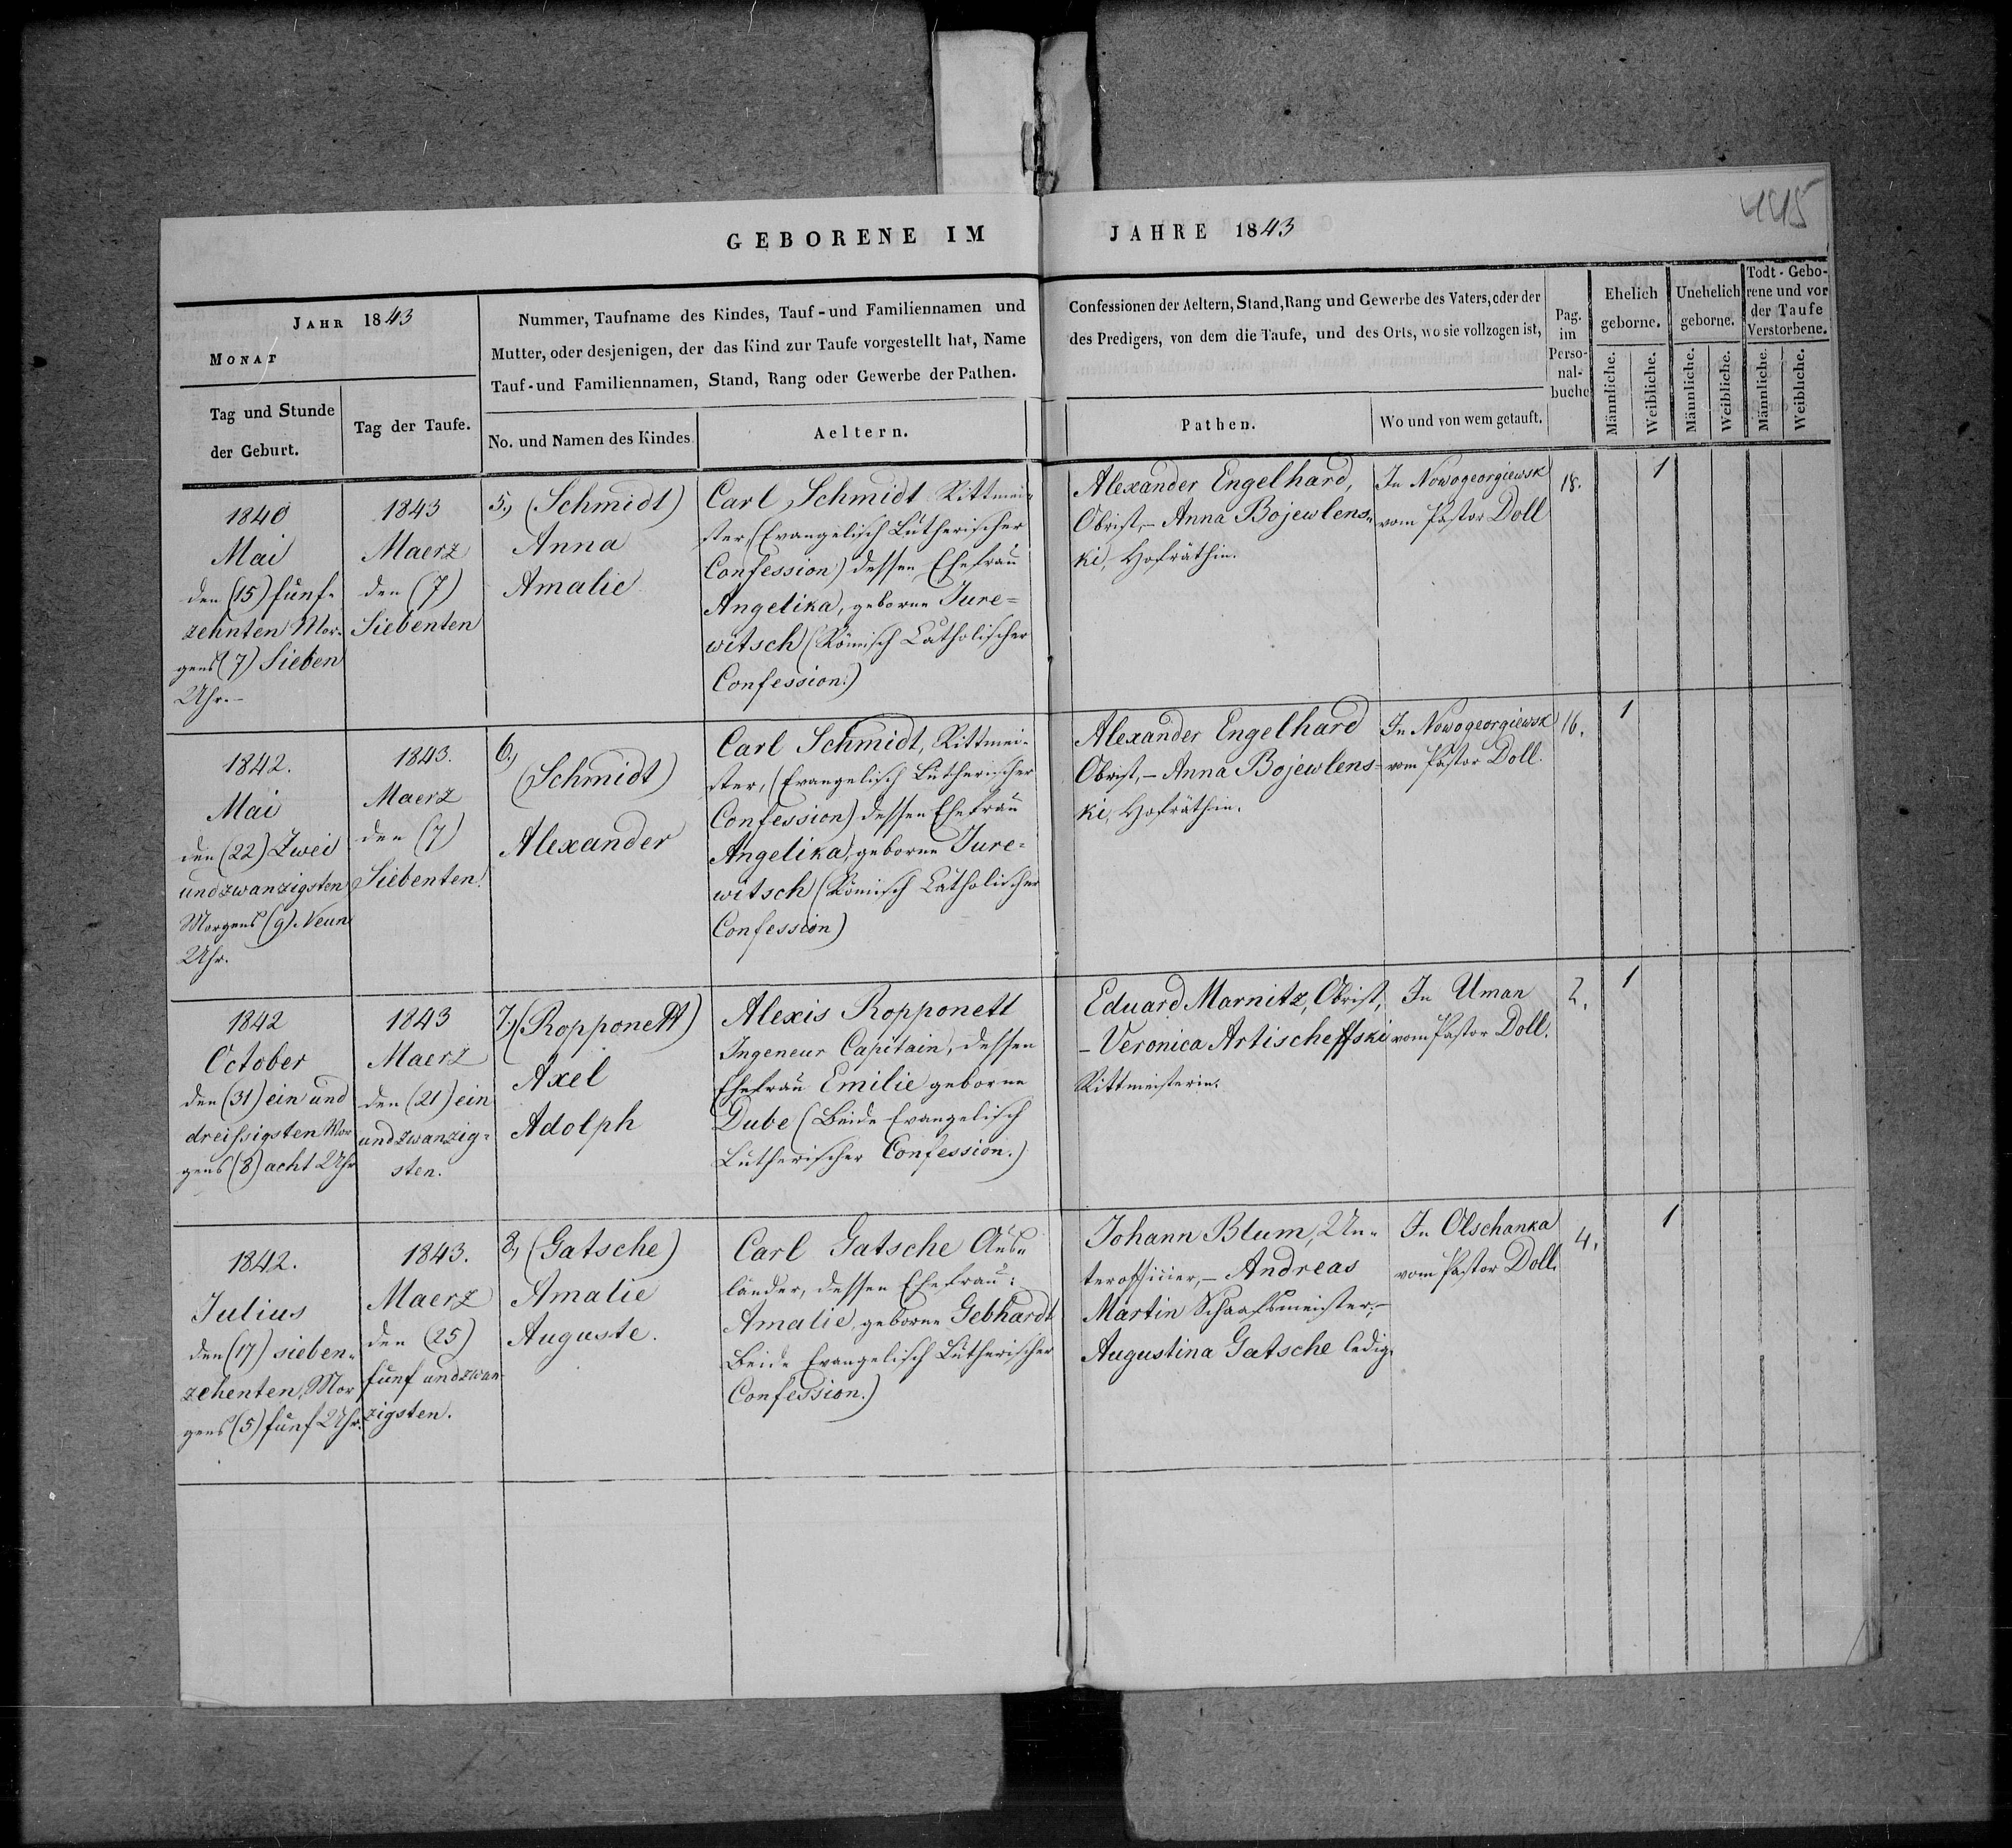 445
GEBORENE IM JAHRE 1843
JAHR 1843
MONAT
Tag und Stunde
der Geburt.
Tag der Taufe.
Nummer, Taufname des Kindes, Tauf-und Familiennamen und
Mutter, oder desjenigen, der das Kind zur Taufe vorgestellt hat, Name
Tauf-und Familiennamen, Stand, Rang oder Gewerbe der Pathen.
No. und Namen des Kindes
Aeltern.
Confessionen der Aeltern, Stand, Rang und Gewerbe des Vaters, oder der
des Predigers, von dem die Taufe, und des Orts, wo sie vollzogen ist,
Pathen.
Wo und von wem getauft.
Pag.
im
Perso-
nal-
buche
Ehelich
geborne.
Männliche.
Weibliche.
Unehelich
geborne.
Männliche.
Weibliche.
Todt-Gebo-
rene und vor
der Taufe
Verstorbene.
Männliche.
Weibliche.
1840
Mai
den (15) funf-
zehnten Mor-
gens (7) Sieben
Uhr.-
1843
Maerz
den (7)
Siebenten
5,) (Schmidt)
Anna
Amalie
Carl Schmidt Rittmei-
ster, (Evangelisch Lutherischer
Confession) dessen Ehefrau
Angelika, geborne Jure-
witsch (Römisch Catholischer
Confession.)
Alexander Engelhard,
Obrist,- Anna Bojewlens-
ki, Hofräthin.
In Nowogeorgiewsk
vom Pastor Doll
18.
1
1842.
Mai
den (22) Zwei
undzwanzigsten
Morgens (9). Neun
Uhr.
1843.
Maerz
den (7)
Siebenten.
6,)
(Schmidt)
Alexander
Carl Schmidt, Rittmei-
ster, (Evangelisch Lutherischer
Confession) dessen Ehefrau
Angelika, geborne Jure-
witsch (Römisch Catholischer
Confession)
Alexander Engelhard
Obrist,- Anna Bojewlens-
ki, Hofräthin.
In Nowogeorgiewsk
vom Pastor Doll.
16.
1
1842
October
den (31) ein und
dreissigsten Mor
gens (8) acht Uhr
1843
Maerz
den (21) ein
und zwanzig-
sten.
7,) (Ropponett)
Axel
Adolph
Alexis Ropponett
Ingeneur Capitain, dessen
Ehefrau Emilie geborne
Dube (Beide Evangelisch
Lutherischer Confession.)
Eduard Marnitz, Obrist,
- Veronica Artischeffski
Rittmeisterin.
In Uman
vom Pastor Doll.
2.
1
1842.
Julius
den (17) sieben-
zehenten, Mor
gens (5) funf Uhr.
1843.
Maerz
den (25)
funf und zwan-
zigsten.
8,) (Gatsche)
Amalie
Auguste.
Carl Gatsche Aus-
länder, dessen Ehefrau:
Amalie, geborne Gebhardt
Beide Evangelisch Lutherischer
Confession.)
Johann Blum, Un-
terofficier,- Andreas
Martin Schaafsmeister,-
Augustina Gatsche ledig.
In Olschanka
vom Pastor Doll.
4.
1